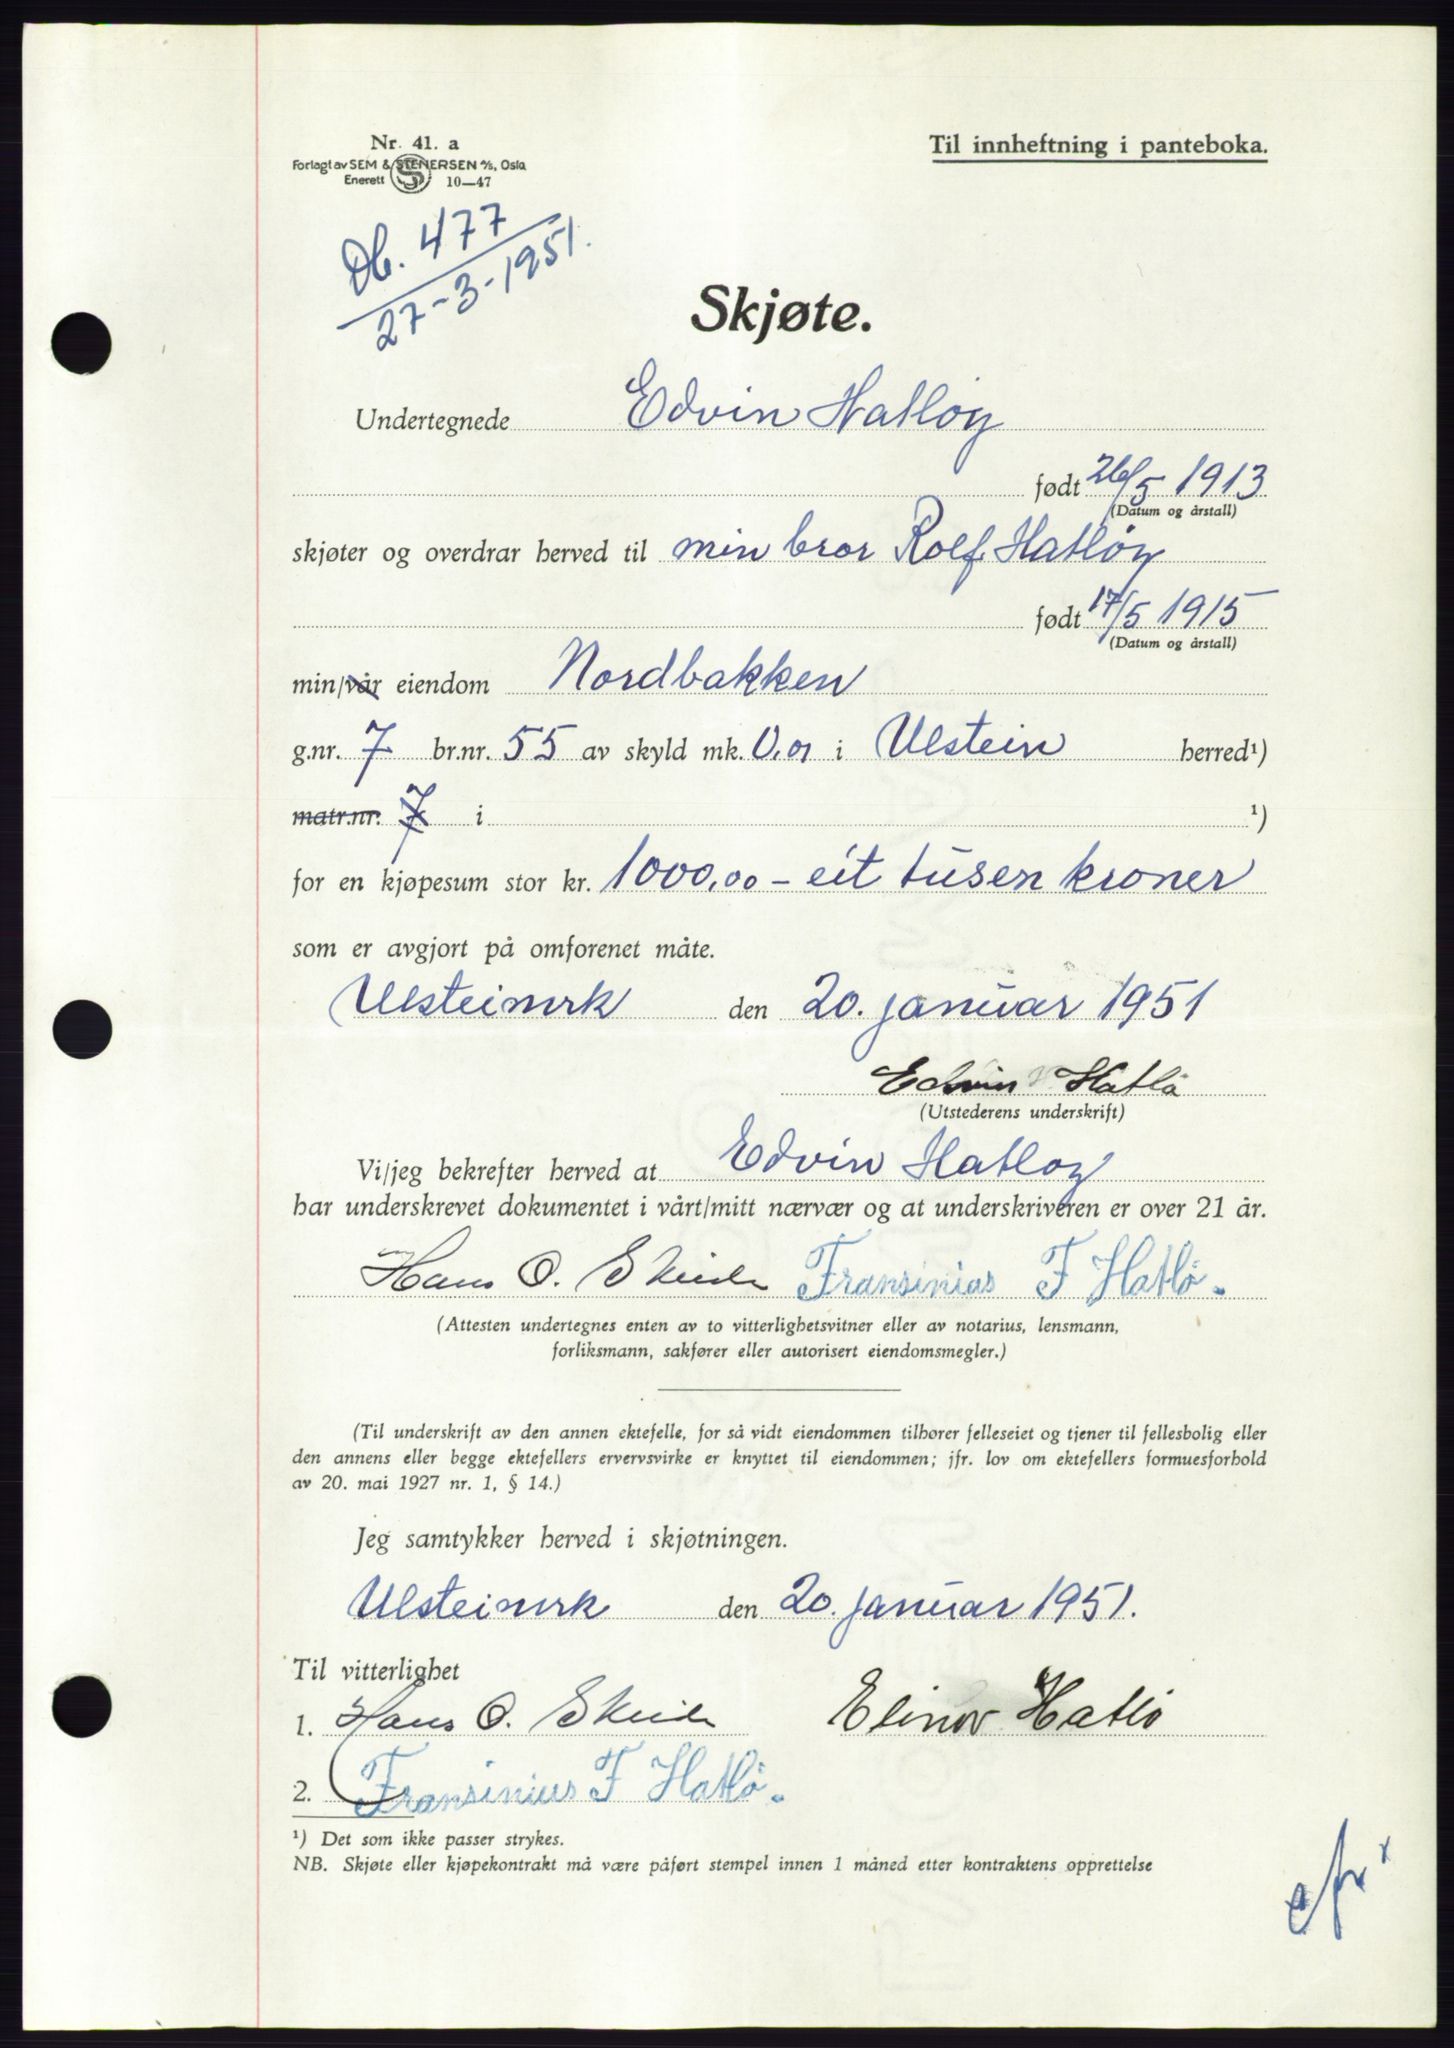 Nr. 41. a
Til innheftning i panteboka.
Forlagt av SEM & STENERSEN A/S, Oslo
Enerett S 10—47
Db. 477
27-3-1951.
Skjøte.
Undertegnede Edvin Hatløy
født 26/5 1913
(Datum og årstall)
skjøter og overdrar herved til min bror Rolf Hatløy
født 17/5 1915
(Datum og årstall)
min/vår eiendom Nordbakken
g.nr. 7 br.nr. 55 av skyld mk. 0,01 i Ulstein herred¹)
matr.nr. 7 i ¹)
for en kjøpesum stor kr. 1000,00 - eit tusen kroner
som er avgjort på omforenet måte.
Ulsteinvik den 20. januar 1951
Edvin Hatlø
(Utstederens underskrift)
Vi/jeg bekrefter herved at Edvin Hatløy
har underskrevet dokumentet i vårt/mitt nærvær og at underskriveren er over 21 år.
Hans O. Skeide Fransinius F Hatlø.
(Attesten undertegnes enten av to vitterlighetsvitner eller av notarius, lensmann,
forliksmann, sakfører eller autorisert eiendomsmegler.)
(Til underskrift av den annen ektefelle, for så vidt eiendommen tilhører felleseiet og tjener til fellesbolig eller
den annens eller begge ektefellers ervervsvirke er knyttet til eiendommen; jfr. lov om ektefellers formuesforhold
av 20. mai 1927 nr. 1, § 14.)
Jeg samtykker herved i skjøtningen.
Ulsteinvik den 20. januar 1951.
Til vitterlighet
1. Hans O. Skeide Elinor Hatlø
2. Fransinius F Hatlø.
¹) Det som ikke passer strykes.
NB. Skjøte eller kjøpekontrakt må være påført stempel innen 1 måned etter kontraktens opprettelse